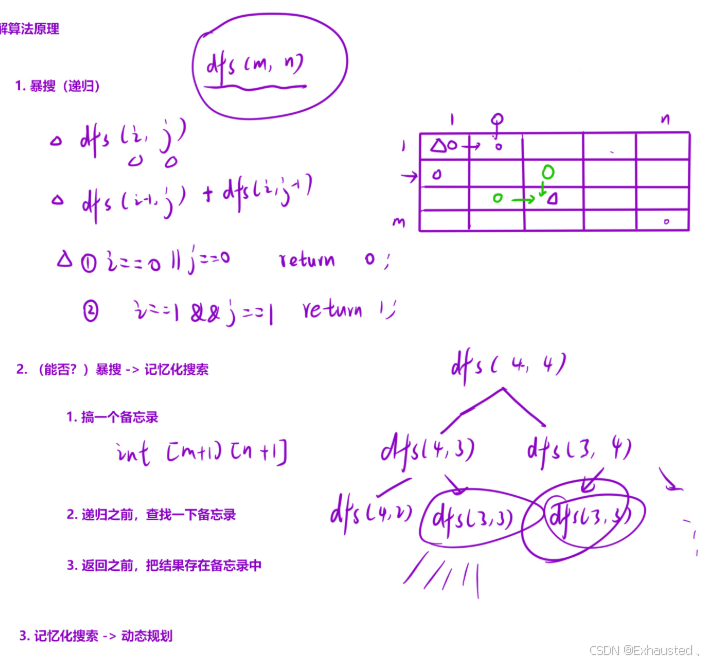 解算法原理
dfs(m, n)
1. 暴搜（递归）
dfs(i, j)
dfs(i-1, j) + dfs(i, j-1)
① i==0 || j==0 return 0;
② i==1 && j==1 return 1;
1 n
1
m
2. （能否？）暴搜 -> 记忆化搜索
1. 搞一个备忘录
int [m+1][n+1]
2. 递归之前，查找一下备忘录
3. 返回之前，把结果存在备忘录中
dfs(4, 4)
dfs(4,3) dfs(3, 4)
dfs(4,2) dfs(3,3) dfs(3,3)
3. 记忆化搜索 -> 动态规划
CSDN @Exhausted、